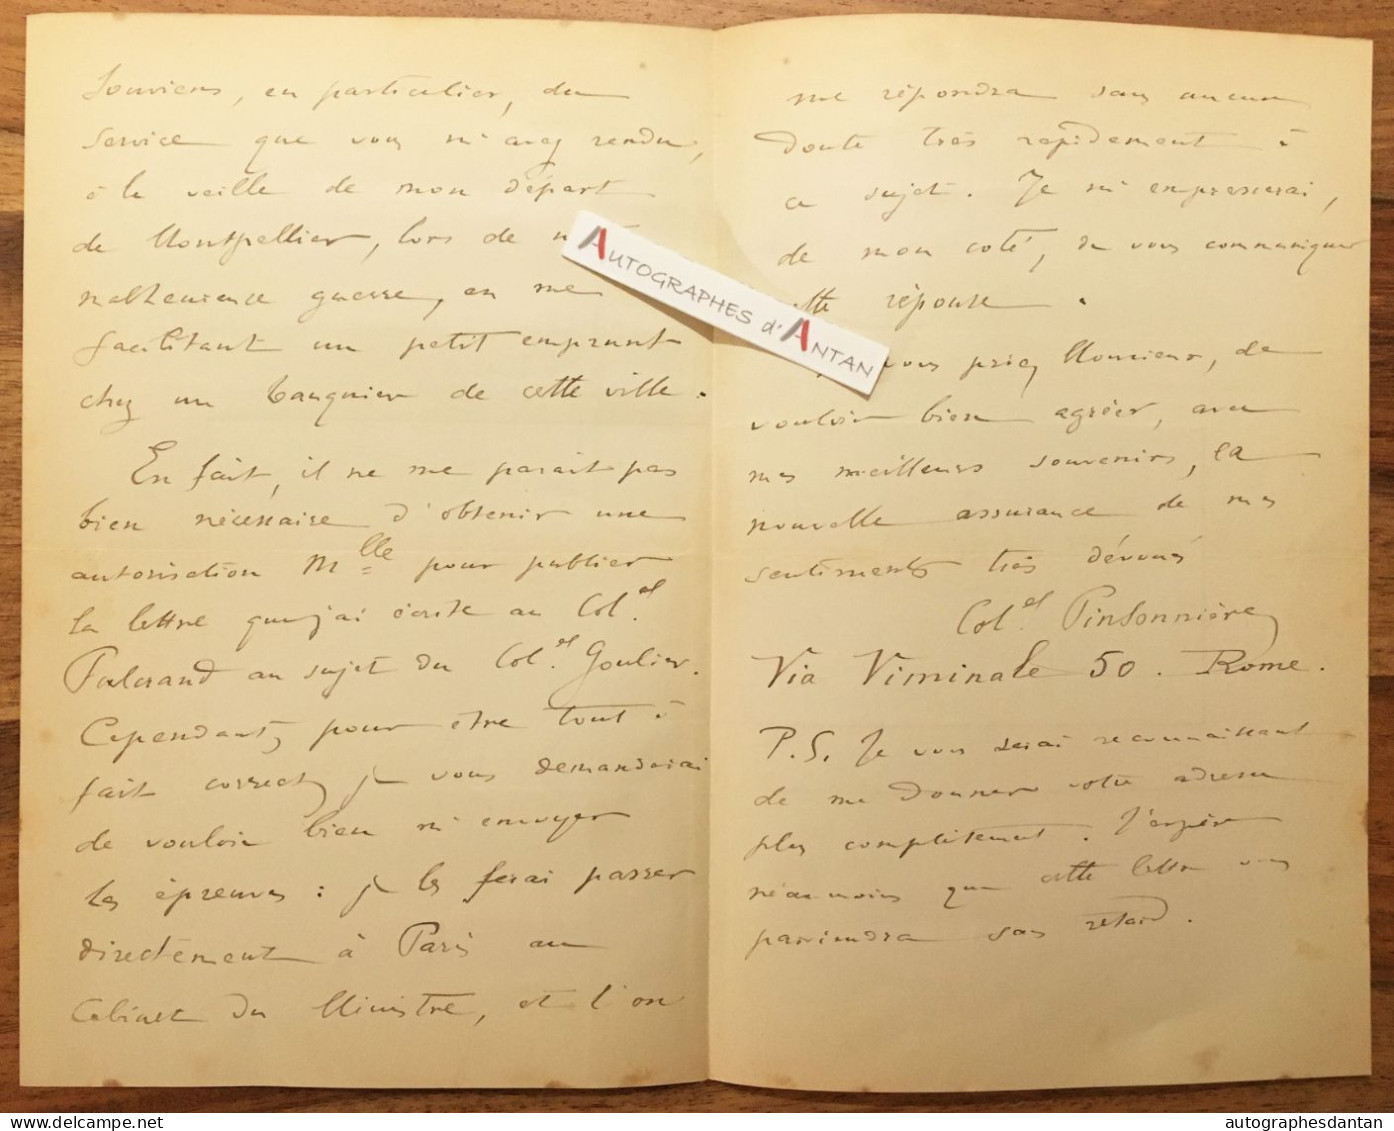 souviens, en particulier, du
service que vous m'avez rendu,
à la veille de mon départ
de Montpellier, lors de
malheureuse guerre, en me
facilitant un petit emprunt
chez un banquier de cette ville.
En fait, il ne me parait pas
bien nécessaire d'obtenir une
autorisation Mlle pour publier
la lettre que j'ai écrite au Col.el
au sujet du Col.el Goulier.
Cependant, pour être tout à
fait correct, je vous demanderai
de vouloir bien m'envoyer
les épreuves : je les ferai passer
directement à Paris au
Cabinet du Ministre, et l'on
me répondra sans aucun
doute très rapidement à
ce sujet. Je m'empresserai,
de mon coté, de vous communiquer
cette réponse.
vous priez Monsieur, de
vouloir bien agréer, avec
mes meilleurs souvenirs, la
nouvelle assurance de mes
sentiments très dévoués
Col.el Pinsonnière
Via Viminale 50. Rome.
P.S. Je vous serai reconnaissant
de me donner votre adresse
plus complètement. J'espère
néanmoins que cette lettre vous
parviendra sans retard.
AUTOGRAPHES d'ANTAN
autographesdantan